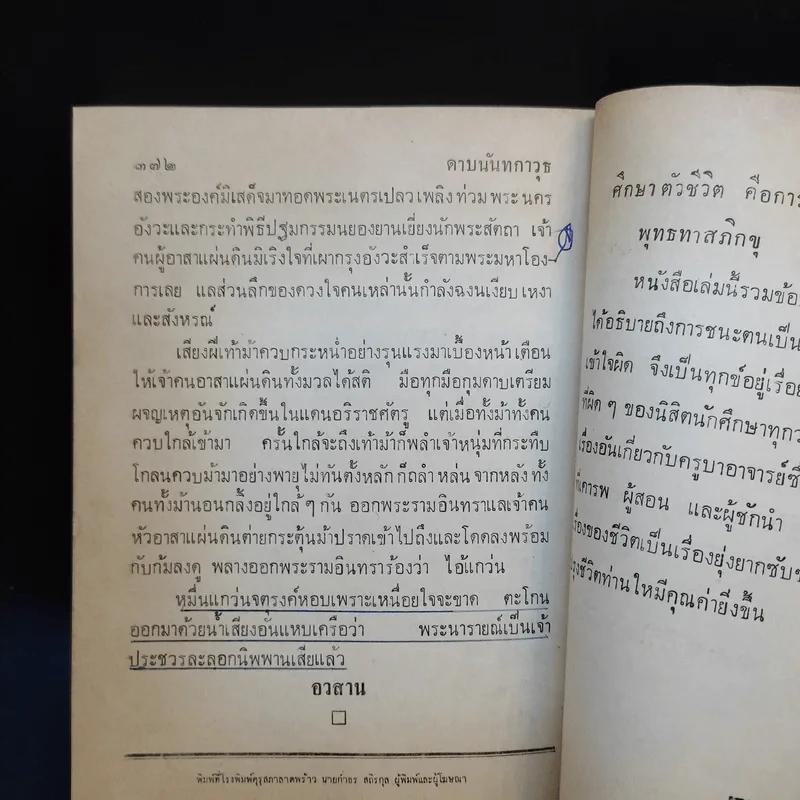 ๓๗๒ ดาบนันทกาวุธ
สองพระองค์มิเสด็จมาทอดพระเนตรเปลวเพลิงท่วมพระนคร
อังวะและกระทำพิธีปฐมกรรมนยองยานเยี่ยงนักพระสัตถา เจ้า
คนผู้อาสาแผ่นดินมิเริงใจที่เผากรุงอังวะสำเร็จตามพระมหาโอง-
การเลย แลส่วนลึกของดวงใจคนเหล่านั้นกำลังฉงนเงียบเหงา
และสังหรณ์
เสียงฝีเท้าม้าควบกระหน่ำอย่างรุนแรงมาเบื้องหน้า เตือน
ให้เจ้าคนอาสาแผ่นดินทั้งมวลได้สติ มือทุกมือกุมดาบเตรียม
ผจญเหตุอันจักเกิดขึ้นในแดนอริราชศัตรู แต่เมื่อทั้งม้าทั้งคน
ควบใกล้เข้ามา ครั้นใกล้จะถึงเท้าม้าก็พลำเจ้าหนุ่มที่กระทืบ
โกลนควบม้ามาอย่างพายุไม่ทันตั้งหลัก ก็ถลำหล่นจากหลัง ทั้ง
คนทั้งม้านอนกลิ้งอยู่ใกล้ๆ กัน ออกพระรามอินทราแลเจ้าคน
หัวอาสาแผ่นดินต่ายกระตุ้นม้าปราดเข้าไปถึงและโดดลงพร้อม
กับก้มลงดู พลางออกพระรามอินทราร้องว่า ไอ้แกว่น
หมื่นแกว่นจตุรงค์หอบเพราะเหนื่อยใจจะขาด ตะโกน
ออกมาด้วยน้ำเสียงอันแหบเครือว่า พระนารายณ์เป็นเจ้า
ประชวรละลอกนิพพานเสียแล้ว
อวสาน
พิมพ์ที่โรงพิมพ์คุรุสภาลาดพร้าว นายกำธร สถิรกุล ผู้พิมพ์และผู้โฆษณา
ศึกษาตัวชีวิต คือการ
พุทธทาสภิกขุ
หนังสือเล่มนี้รวมข้อ
ได้อธิบายถึงการชนะตนเป็น
เข้าใจผิด จึงเป็นทุกข์อยู่เรื่อย
ที่ผิดๆ ของนิสิตนักศึกษาทุก
เรื่องอันเกี่ยวกับครูบาอาจารย์ซึ่
ที่เคารพ ผู้สอน และผู้ชักนำ
ของชีวิตเป็นเรื่องยุ่งยากซับ
ชีวิตท่านให้มีคุณค่ายิ่งขึ้น